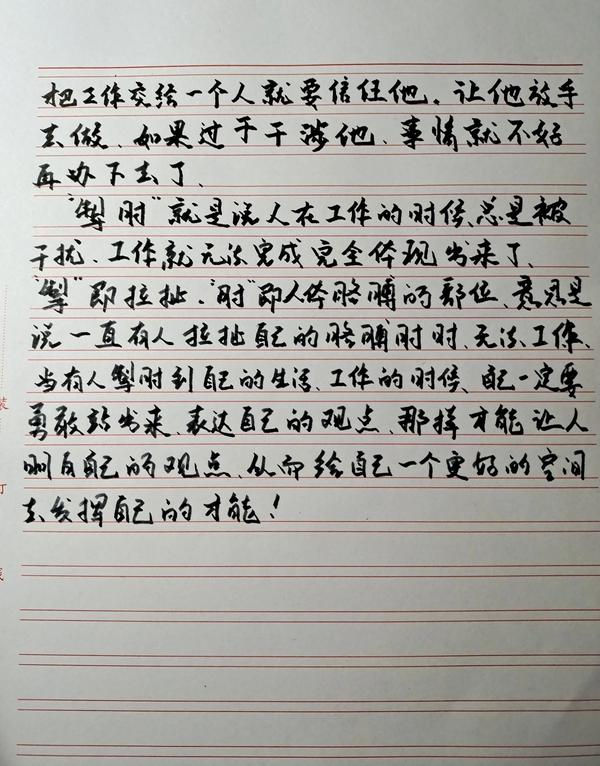 把工作交给一个人就要信任他。让他放手
去做、如果过于干涉他、事情就不好
再办下去了、
“掣肘”就是说人在工作的时候、总是被
干扰、工作就无法完成完全体现出来了、
“掣”即拉扯、“肘”即人体胳膊的部位、意思是
说一直有人拉扯自己的胳膊肘时、无法工作、
当有人掣肘到自己的生活、工作的时候、自己一定要
勇敢站出来、表达自己的观点、那样才能让人
明白自己的观点、从而给自己一个更好的空间
去发挥自己的才能！
装
订
线